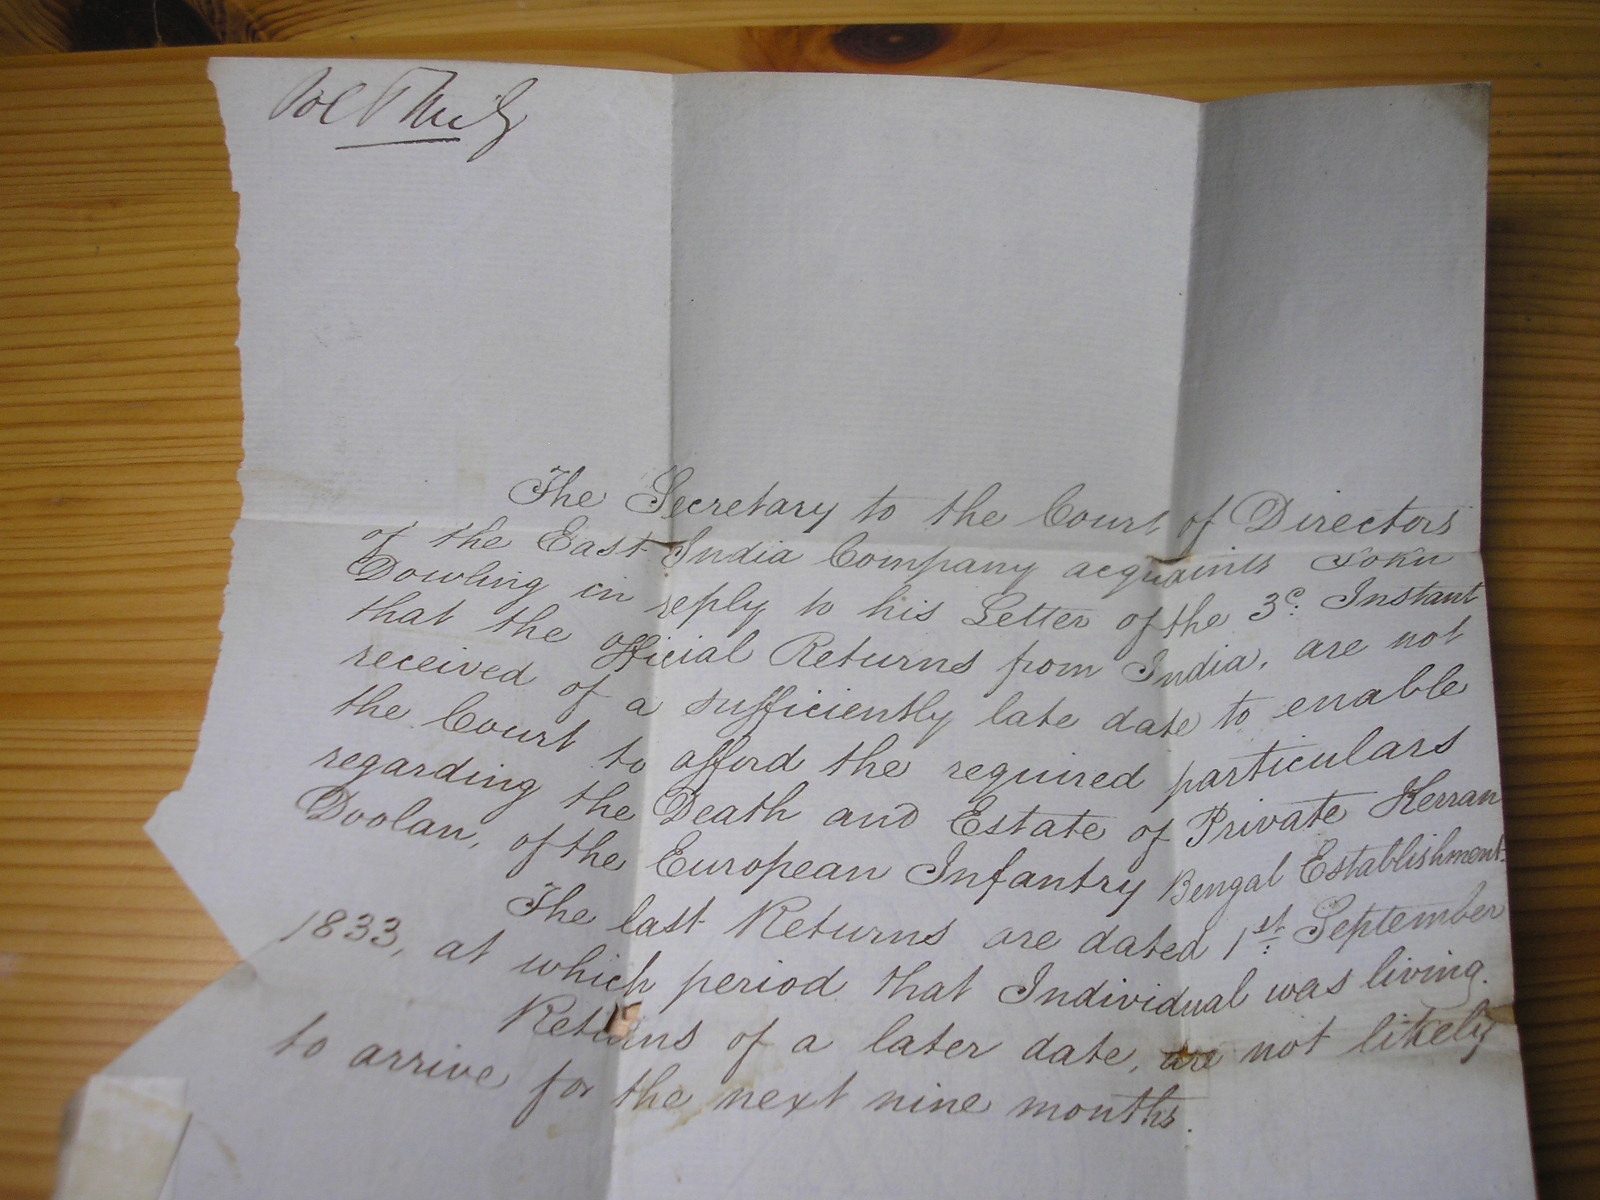 The Secretary to the Court of Directors
of the East India Company acquaints John
Dowling in reply to his Letter of the 3d. Instant
that the official Returns from India, are not
received of a sufficiently late date to enable
the Court to afford the required particulars
regarding the Death and Estate of Private Kerran
Doolan, of the European Infantry Bengal Establishment.
The last Returns are dated 1st. September
1833, at which period that Individual was living.
Returns of a later date, are not likely
to arrive for the next nine months.